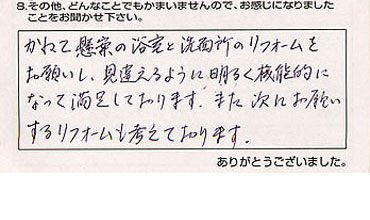 8.その他、どんなことでもかまいませんので、お感じになりました
ことをお聞かせ下さい。
かねて懸案の浴室と洗面所のリフォームを
お願いし、見違えるように明るく機能的に
なって満足しております。また次にお願い
するリフォームも考えております。
ありがとうございました。